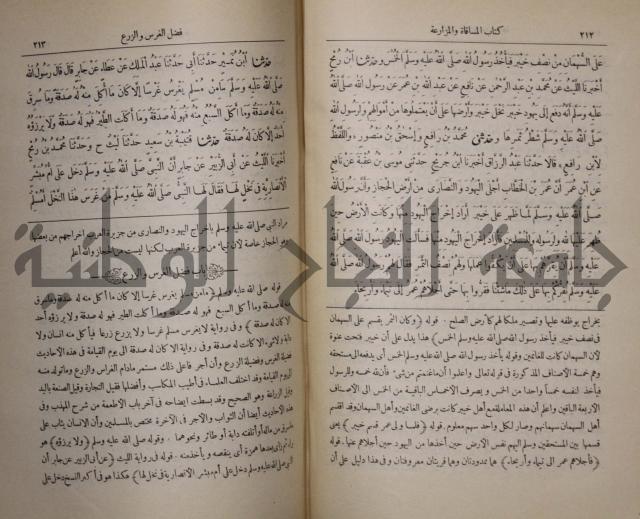 ٢١٢
كتاب المساقاة والمزارعة
على السهمان من نصف خيبر فيأخذ رسول الله صلى الله عليه وسلم الخمس وحدثنا ابن رمح
أخبرنا الليث عن محمد بن عبد الرحمن عن نافع عن عبد الله بن عمر عن رسول الله صلى الله
عليه وسلم أنه دفع إلى يهود خيبر نخل خيبر وأرضها على أن يعتملوها من أموالهم ولرسول الله
صلى الله عليه وسلم شطر ثمرها وحدثني محمد بن رافع وإسحق بن منصور واللفظ
لابن رافع قالا حدثنا عبد الرزاق أخبرنا ابن جريج حدثني موسى بن عقبة عن نافع
عن ابن عمر أن عمر بن الخطاب أجلى اليهود والنصارى من أرض الحجاز وأن رسول الله
صلى الله عليه وسلم لما ظهر على خيبر أراد إخراج اليهود منها وكانت الأرض حين
ظهر عليها لله ولرسوله وللمسلمين فأراد إخراج اليهود منها فسألت اليهود رسول الله صلى الله
عليه وسلم أن يقرهم بها على أن يكفوا عملها ولهم نصف الثمر فقال لهم رسول الله صلى الله
عليه وسلم نقركم بها على ذلك ما شئنا فقروا بها حتى أجلاهم عمر إلى تيماء وأريحاء
بخراج يوظفه عليها وتصير ملكا لهم كأرض الصلح. قوله ﴿وكان الثمر يقسم على السهمان
في نصف خيبر فيأخذ رسول الله صلى الله عليه وسلم الخمس﴾ هذا يدل على أن خيبر فتحت عنوة
لأن السهمان كانت للغانمين وقوله يأخذ رسول الله صلى الله عليه وسلم الخمس أي يدفعه إلى مستحقه
وهم خمسة الأصناف المذكورة في قوله تعالى واعلموا أنما غنمتم من شيء فأن لله خمسه وللرسول
فيأخذ لنفسه خمسا واحدا من الخمس ويصرف الأخماس الباقية من الخمس إلى الأصناف
الأربعة الباقين واعلم أن هذه المعاملة مع أهل خيبر كانت برضى الغانمين وأهل السهمان وقد اقتسم
أهل السهمان سهمانهم وصار لكل واحد سهم معلوم. قوله ﴿فلما ولى عمر قسم خيبر﴾ يعني
قسمها بين المستحقين وسلم اليهم نفس الأرض حين أخذها من اليهود حين أجلاهم عنها. قوله
﴿فأجلاهم عمر الى تيماء وأريحاء﴾ هما ممدودتان وهما قريتان معروفتان وفي هذا دليل على أن
فضل الغرس والزرع
٢١٣
حدثنا ابن نمير حدثنا أبي حدثنا عبد الملك عن عطاء عن جابر قال قال رسول الله
صلى الله عليه وسلم ما من مسلم يغرس غرسا إلا كان ما أكل منه له صدقة وما سرق
منه له صدقة وما أكل السبع منه فهو له صدقة وما أكلت الطير فهو له صدقة ولا يرزؤه
أحد إلا كان له صدقة حدثنا قتيبة بن سعيد حدثنا ليث ح وحدثنا محمد بن رمح
أخبرنا الليث عن أبي الزبير عن جابر أن النبي صلى الله عليه وسلم دخل على أم مبشر
الأنصارية في نخل لها فقال لها النبي صلى الله عليه وسلم من غرس هذا النخل أمسلم
مراد النبي صلى الله عليه وسلم باخراج اليهود والنصارى من جزيرة العرب اخراجهم من بعضها
وهو الحجاز خاصة لأن تيماء من جزيرة العرب لكنها ليست من الحجاز والله أعلم
باب فضل الغرس والزرع
قوله صلى الله عليه وسلم ﴿ما من مسلم يغرس غرسا الا كان ما أكل منه له صدقة وما سرق
له صدقة وما أكل السبع فهو له صدقة وما أكلت الطير فهو له صدقة ولا يرزؤه أحد
الا كان له صدقة﴾ وفي رواية لا يغرس مسلم غرسا ولا يزرع زرعا فيأكل منه انسان ولا
دابة ولا شيء الا كانت له صدقة وفي رواية الا كان له صدقة الى يوم القيامة في هذه الأحاديث
فضيلة الغرس وفضيلة الزرع وأن أجر فاعلي ذلك مستمر مادام الغراس والزرع وما تولد منه
الى يوم القيامة وقد اختلف العلماء في أطيب المكاسب وأفضلها فقيل التجارة وقيل الصنعة باليد
وقيل الزراعة وهو الصحيح وقد بسطت ايضاحه في آخر باب الأطعمة من شرح المهذب وفي
هذه الأحاديث أيضا أن الثواب والأجر في الآخرة مختص بالمسلمين وأن الانسان يثاب على
ما سرق من ماله أو أتلفته دابة أو طائر ونحوهما. وقوله صلى الله عليه وسلم ﴿ولا يرزؤه﴾ هو
براء ثم زاي بعدها همزة أي ينقصه ويأخذ منه. قوله في رواية الليث ﴿عن أبي الزبير عن جابر أن
النبي صلى الله عليه وسلم دخل على أم مبشر الأنصارية في نخل لها﴾ هكذا هو في أكثر النسخ دخل على
جامعة النجاح الوطنية